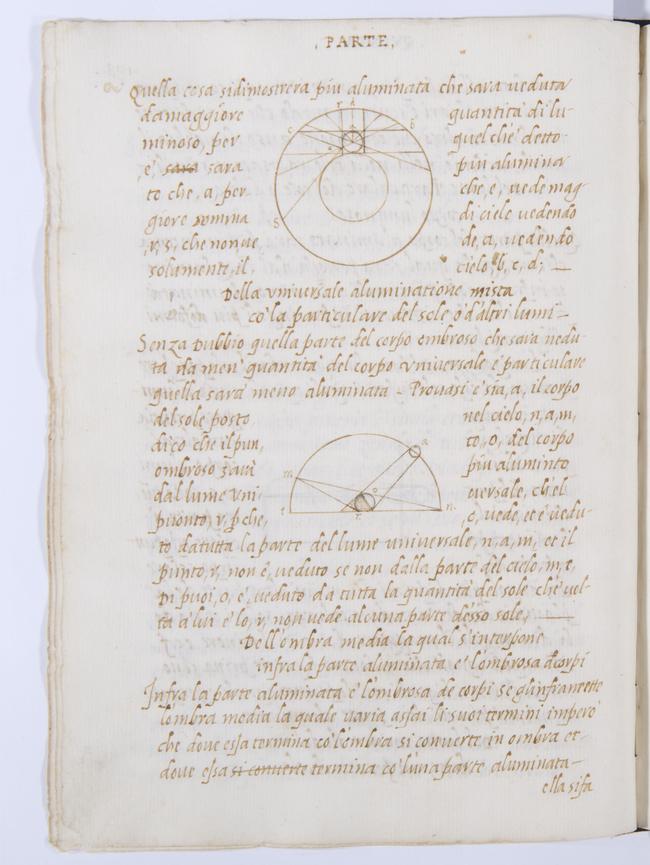 . PARTE .
Quella cosa sidimostrera piu aluminata che sara ueduta
damaggiore quantita di lu-
minoso, per quel che detto
e', sara sara piu alumina
to che, a, per che, e, uede mag-
giore somma di cielo uedendo
,r, s, che non ue, de, a, uedendo
solamente, il, cielo, b, c, d, —
Della vniuersale aluminatione mista
co' la particulare del sole o d'altri lumi —
Senza Dubbio quella parte del corpo ombroso che sara uedu-
ta da men' quantita del corpo vniuersale e particulare
quella sara meno aluminata - Prouasi e sia, a, il corpo
del sole posto nel cielo, n, a, m,
dico che il pun, to, o, del corpo
ombroso sara piu aluminto
dal lume uni- uersale, ch'el
puonto, r, p che, o, uede, et e uedu-
to da tutta la parte del lume vniuersale, n, a, m, et il
punto, r, non e, ueduto se non dalla parte del cielo, m, t,
Di puoi, o, e, ueduto da tutta la quantita del sole che uol-
ta a lui e lo, r, non uede alcuna parte desso sole, —
Dell'ombra media la qual s'interpone
infra la parte aluminata e l'ombrosa de corpi
Infra la parte aluminata e l'ombrosa de corpi se gl'inframette
l'ombra media la quale uaria assai li suoi termini impero
che doue essa termina co' l'ombra si conuerte in ombra et
doue essa si conuerte termina co' l'una parte aluminata —
ella si fa
r d
c b
a
S
m a
o
t r n